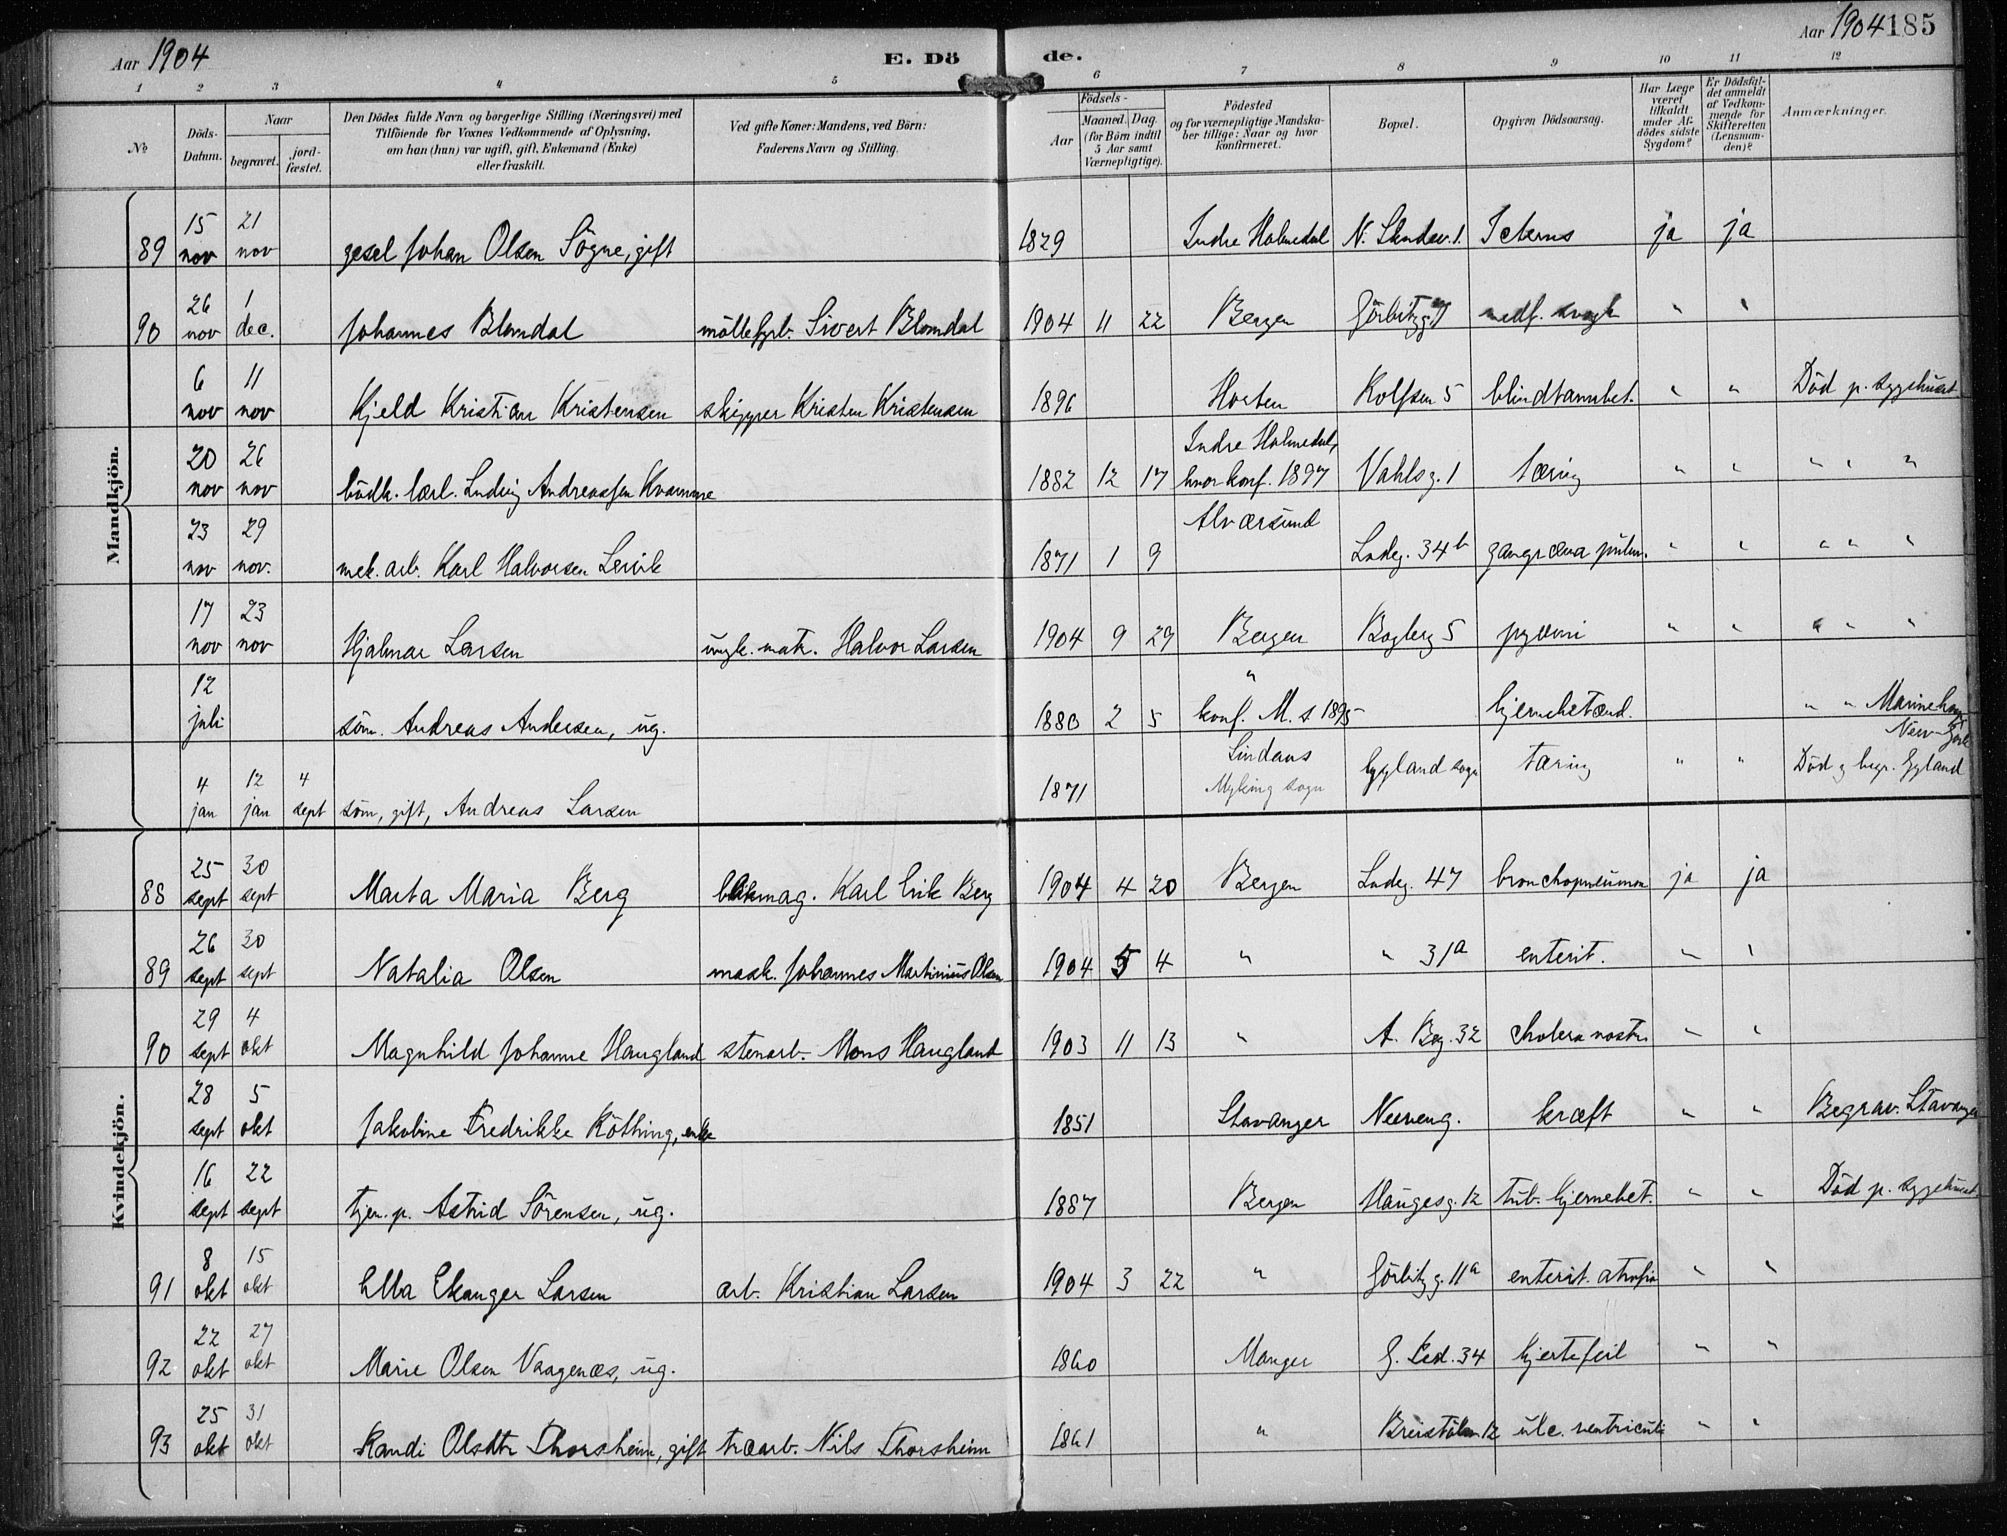 Aar 1904 E. Dö de. Aar 1904 185
1 2 3 4 5 6 7 8 9 10 11 12
№
Döds-Datum.
Naar
begravet.
jord-fæstet.
Den Dödes fulde Navn og borgerlige Stilling (Næringsvei) med
Tilföiende for Voxnes Vedkommende af Oplysning,
om han (hun) var ugift, gift, Enkemand (Enke)
eller fraskilt.
Ved gifte Koner: Mandens, ved Börn:
Faderens Navn og Stilling.
Födsels-
Aar
Maaned. Dag.
(for Börn indtil
5 Aar samt
Værnepligtige).
Födested
og for værnepligtige Mandska-
ber tillige: Naar og hvor
konfirmeret.
Bopæl.
Opgiven Dödsaarsag.
Har Læge
været
tilkaldt
under Af-
dödes sidste
Sygdom?
Er Dödsfal-
det anmeldt
af Vedkom-
mende for
Skifteretten
(Lensman-
den)?
Anmærkninger.
Mandkjön.
89 15 nov 21 nov gesel Johan Olsen Sögne, gift 1829 Indre Holmedal Icterus ja ja
90 26 nov 1 dec. Johannes Blomdal Sivert Blomdal 1904 11 22 Bergen Görbitzg. 7 medf. svagh " "
6 nov 11 nov Kjeld Kristian Kristensen skipper Kristen Kristensen 1896 Horten 5 blindtarmbet. " " Död p. sygehuset
20 nov 26 nov bödk. lærl. Ludvig Andreassen Kvamme 1882 12 17 Indre Holmedal, hvor konf. 1897 Vahlsg. 1 tæring " " " " "
23 nov 29 nov. mek. arb. Karl Halvorsen Lervik 1871 1 9 Alværsund Ladeg. 34b gangræna pulm. " " " " "
17 nov 23 nov Hjalmar Larsen matr. Halvor Larsen 1904 9 29 Bergen 5 pyæmi " " " " "
12 juli söm. Andreas Andersen, ug. 1880 2 5 " konf. M. s 1895 hjernebetænd. " " Marinehosp New-York
4 jan 12 jan 4 sept söm, gift, Andreas Larsen 1871 Lindaas Myking sogn Gyland sogn tæring " " Död og begr. Gyland
Kvindekjön.
88 25 sept 30 sept Marta Maria Berg Karl Erik Berg 1904 4 20 Bergen Ladeg. 47 bronchopneumon ja ja
89 26 sept 30 sept Natalia Olsen mask. Johannes Martinius Olsen 1904 5 4 " " 31a enterit. " "
90 29 sept 4 okt Magnhild Johanne Haugland stenarb. Mons Haugland 1903 11 13 " 32 cholera nostr. " "
28 sept 5 okt Jakobine Fredrikke Köthing, enke 1851 Stavanger kræft " " Begrav. Stavanger
16 sept 22 sept tjen. p. Astrid Sörensen, ug. 1887 Bergen Haugesg. 12 tub. hjernebet. " " Död p. sygehuset
91 8 okt 15 okt Ella Ekanger Larsen arb. Kristian Larsen 1904 3 22 " Görbitzg. 11a enterit. atrofia " "
92 22 okt 27 okt Marie Olsen Vaagenæs, ug. 1860 Manger 34 hjertefeil " "
93 25 okt 31 okt Randi Olsdtr Thorsheim, gift træarb. Nils Thorsheim 1861 " Breistölen 12 ulc. ventriculi " "